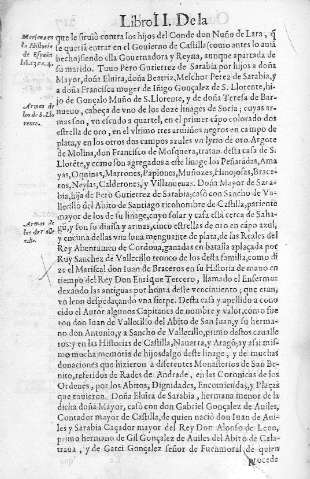 Libro II. De la
Mariana en
la Historia
de España
lib.13.c.4.
que le siruiò contra los hijos del Conde don Nuño de Lara, q
se queria entrar en el Gouierno de Castilla, como antes lo auia
hecho, siendo ella Gouernadora y Reyna, aunque apartada de
su marido. Tuuo Pero Gutierrez de Sarabia por hijos a doña
Mayor, doña Eluira, doña Beatriz, Melchor Perez de Sarabia, y
a doña Francisca muger de Iñigo Gonçalez de S. Llorente, hi-
jo de Gonçalo Muño de S. Llorente, y de doña Teresa de Bar-
nueuo, cabeça de vno de los doze linages de Soria; cuyas ar-
Armas de
los de S. Llo-
rente.
mas son, vn escudo a quartel, en el primer çapo colorado dos
estrella de oro, en el vltimo tres armiños negros en campo de
plata, y en los otros dos campos azules vn lyrio de oro. Argote
de Molina, don Francisco de Mosquera, tratan desta casa de S.
Llorēte, y como son agregados a este linage los Peñarādas, Ama
yas, Quinnes, Marrones, Papiones, Muñozes, Hinojosas, Brace-
ros, Neylas, Calderones, y Villanueuas. Doña Mayor de Sara-
bia, hija de Pero Gutierrez de Sarabia, casò con Sancho de Va-
llecillo del Abito de Santiago ricohombre de Castilla, pariente
mayor de los de su linage, cuyo solar y casa està cerca de Saha-
Armas de
los de Valle
cillo.
gū, y son su diuisa y armas, cinco estrellas de oro en cāpo azul,
y encima dellas vna luna menguante de plata, de las Reales del
Rey Abenfalueo de Cordoua, ganadas en batalla aplaçada por
Ruy Sanchez de Vallecillo tronco de los desta familia, como di
ze el Mariscal don Iuan de Braceros en su Historia de mano en
tiempo del Rey Don Enrique Tercero, llamado el Enfermo:
dexando las antiguas por honra deste vencimiento; que eran,
vn leon despedaçando vna sierpe. Desta casa y apellido a cono-
cido el Autor algunos Capitanes de nombre y valor, como fue
ron don Iuan de Vallecillo del Abito de San Iuan, y su herma-
no don Antonio, y a Sancho de Vallecillo, primo destos cauallé
ros: y en las Historias de Castilla, Nauarra, y Aragō; ay assi mis-
mo mucha memoria de hijosdalgo deste linage, y de muchas
donaciones que hizieron à diferentes Monasterios de San Be-
nito, referidos de Rades de Andrade, en las Coronicas de las
Ordenes, por los Abitos, Dignidades, Encomiendas, y Plaças
que tuuieron. Doña Eluira de Sarabia, hermana menor de la
dicha doña Mayor, casò con don Gabriel Gonçalez de Auiles,
Contador mayor de Castilla, de quien naciò don Iuan de Aui-
les y Sarabia Caçador mayor del Rey Don Alonso de Leon,
primo hermano de Gil Gonçalez de Auiles del Abito de Cala-
traua, y de Garci Gonçalez señor de Fuenmoral de quien
procede